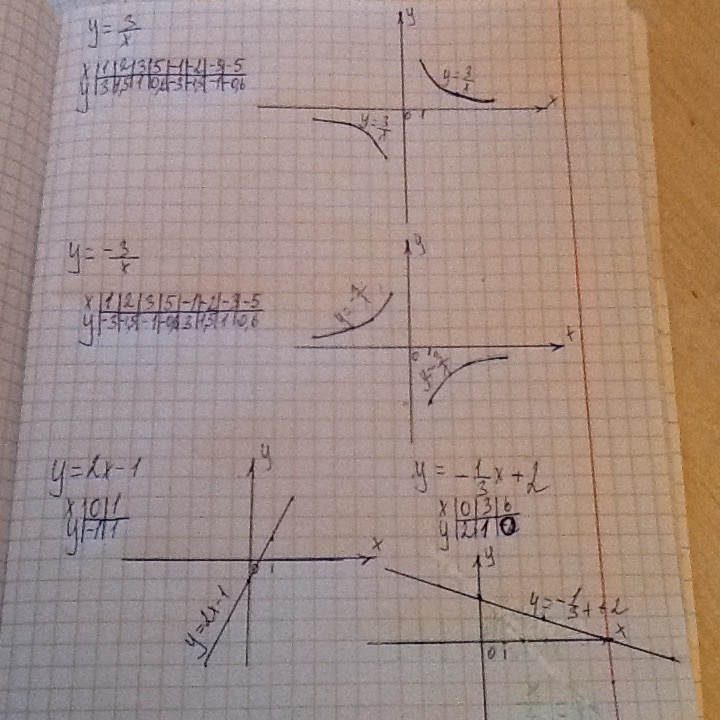 y = 3/x
y
x | 1 | 2 | 3 | 5 | -1 | -2 | -3 | -5
y | 3 | 1,5 | 1 | 0,6 | -3 | -1,5 | -1 | -0,6
y = 3/x
x
0 1
y = 3/x
y = -3/x
y
x | 1 | 2 | 3 | 5 | -1 | -2 | -3 | -5
y | -3 | -1,5 | -1 | -0,6 | 3 | 1,5 | 1 | 0,6
x
0 1
y = 2x-1
y
x | 0 | 1
y | -1 | 1
x
0 1
y = 2x-1
y = -1/3x+2
x | 0 | 3 | 6
y | 2 | 1 | 0
y
y = -1/3 + +2
x
0 1